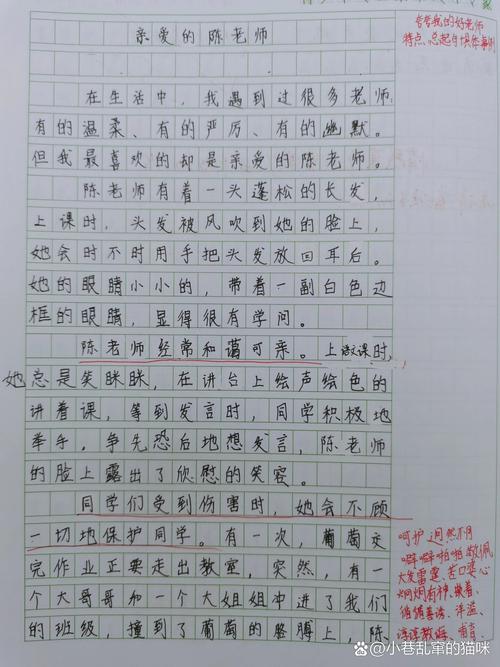 亲爱的陈老师
在生活中，我遇到过很多老师
有的温柔、有的严厉、有的幽默。
但我最喜欢的却是亲爱的陈老师。
陈老师有着一头蓬松的长发，
上课时，头发被风吹到她的脸上，
她会时不时用手把头发放回耳后。
她的眼睛小小的，带着一副白色边
框的眼睛，显得很有学问。
陈老师经常和蔼可亲。上课时，
她总是笑眯眯，在讲台上绘声绘色的
讲着课，等到发言时，同学积极地
举手，争先恐后地想发言，陈老师
的脸上露出了欣慰的笑容。
同学们受到伤害时，她会不顾
一切地保护同学。有一次，葡萄交
完作业正要走出教室，突然，有一
个大哥哥和一个大姐姐冲进了我们
的班级，撞到了葡萄的胳膊上，陈
我的好老师
特点 总起句 具体事例
呵护 迥然不同
噼噼啪啪 敬佩
大发雷霆 苦口婆心
炯炯有神 执着、
循循善诱、洋溢、
谆谆教诲
@小巷乱窜的猫咪